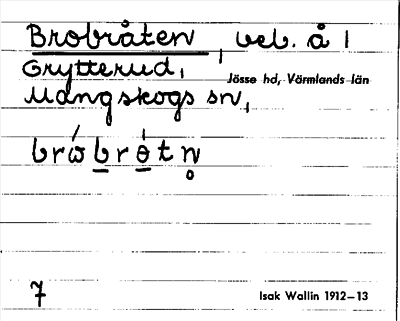 Brobråten, beb. å 1
Grytterud,
Jösse hd, Värmlands län
Mangskogs sn,
brώbrɵ́tn̥
7
Isak Wallin 1912–13